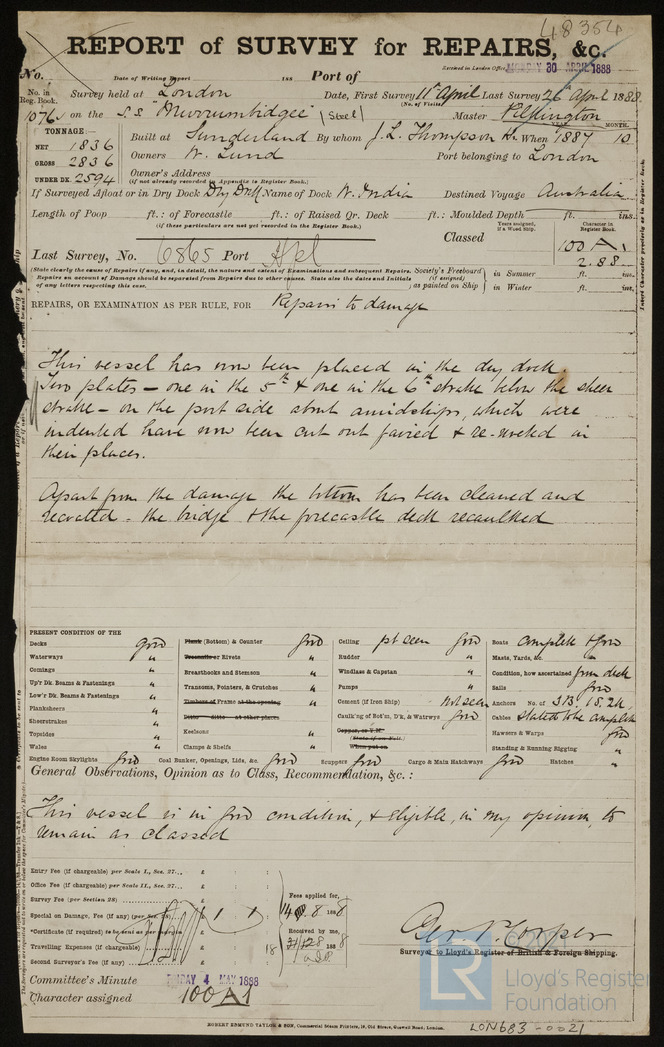 48354
REPORT of SURVEY for REPAIRS, &c.
No. Date of Writing Report 188 Port of Received in London Office MONDAY 30 APRIL 1888
No. in Reg. Book. Survey held at London Date, First Survey 11th April Last Survey 26th April 1888.
(No. of Visits)
1076 on the S.S. "Murrumbidgee" (Steel) Master Pilkington
TONNAGE
NET 1836
GROSS 2836
UNDER DK. 2594
Built at Sunderland By whom J. L. Thompson When 1887 MONTH. 10
Owners W. Lund Port belonging to London
Owner's Address
(if not already recorded in Appendix to Register Book.)
If Surveyed Afloat or in Dry Dock Dry Dock Name of Dock W. India Destined Voyage Australia
Length of Poop ft.: of Forecastle ft.: of Raised Qr. Deck ft.: Moulded Depth ft. ins.
(if these particulars are not yet recorded in the Register Book.)
Classed
Years assigned, if a Wood Ship.
Character in Register Book.
100 A1
2.88
Last Survey, No. 6865 Port Hpl
(State clearly the cause of Repairs if any, and, in detail, the nature and extent of Examinations and subsequent Repairs. Repairs on account of Damage should be separated from Repairs due to other causes. State also the dates and Initials of any letters respecting this case.
Society's Freeboard (if assigned) as painted on Ship
in Summer ft. ins.
in Winter ft. ins.
REPAIRS, OR EXAMINATION AS PER RULE, FOR Repairs to damage
This vessel has now been placed in the dry dock.
Two plates - one in the 5th & one in the 6th strake below the sheer
strake - on the port side about amidships, which were
indented have now been cut out faired & re-riveted in
their places.
Apart from the damage the bottom has been cleaned and
recoated - the bridge & the forecastle deck recaulked
PRESENT CONDITION OF THE
Decks good
Waterways "
Comings "
Up'r Dk. Beams & Fastenings "
Low'r Dk. Beams & Fastenings "
Planksheers "
Sheerstrakes "
Topsides "
Wales "
Engine Room Skylights good
Plank (Bottom) & Counter good
Treenails or Rivets "
Breasthooks and Stemson "
Transoms, Pointers, & Crutches "
Timbers of Frame at the opening "
Ditto ditto at other places
Keelsons "
Clamps & Shelfs "
Coal Bunker, Openings, Lids, &c. good
Ceiling pt seen good
Rudder "
Windlass & Capstan "
Pumps "
Cement (if Iron Ship) not seen
Caulk'g of Bot'm, D'k, & Watrwys good
Scuppers good Cargo & Main Hatchways good
Boats complete & good
Masts, Yards, &c. "
Condition, how ascertained from deck
Sails good
Anchors No. of 3B. 1S. 2K.
Cables stated to be complete
Hawsers & Warps good
Standing & Running Rigging "
Hatches "
General Observations, Opinion as to Class, Recommendation, &c. :
This vessel is in good condition, & eligible, in my opinion, to
remain as classed
Entry Fee (if chargeable) per Scale I., Sec. 27... £ : :
Office Fee (if chargeable) per Scale II., Sec. 27... £ : :
Survey Fee (per Section 28) £ : :
Special on Damage, Fee (if any) (per Sec. 28) £ 1 : 1 :
*Certificate (if required) to be sent as per margin £
Travelling Expenses (if chargeable) £ : :
Second Surveyor's Fee (if any) £ : :
Fees applied for,
188
Received by me,
188
18
Surveyor to Lloyd's Register of British & Foreign Shipping.
Committee's Minute FRIDAY 4 MAY 1888
Character assigned 100A1
LR
Lloyd's Register
Foundation
ROBERT EDMUND TAYLOR & SON, Commercial Steam Printers, 19, Old Street, Goswell Road, London.
LON683-0021